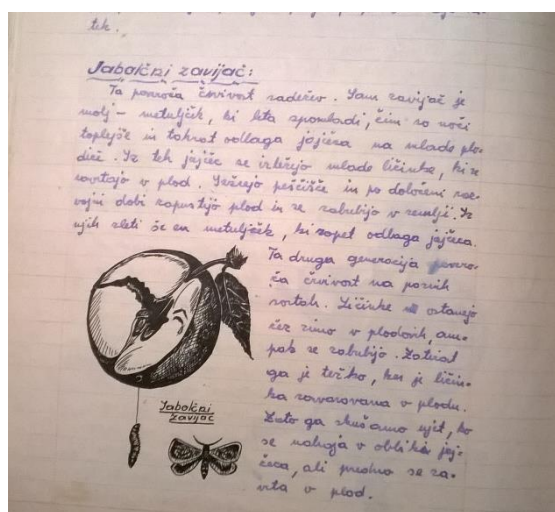 tek.
Jabolčni zavijač:
Ta povzroča črvivost sadežev. Sam zavijač je
molj - metuljček, ki leta spomladi, čim so noči
toplejše in takrat odlaga jajčeca na mlade plo-
diče. Iz teh jajčec se izležejo mlade ličinke, ki se
zavrtajo v plod. Izžrejo peščišče in po določeni raz-
vojni dobi zapustijo plod in se zabubijo v zemlji. Iz
njih zleti še en metuljček, ki zopet odlaga jajčeca.
Ta druga generacija povzro-
ča črvivost na poznih
sortah. Ličinke ostanejo
čez zimo v plodovih, am-
pak se zabubijo. Zatirat
ga je težko, ker je ličin-
ka zavarovana v plodu.
Zato ga skušamo ujet, ko
se nahaja v obliki jaj-
čeca, ali predno se za-
vrta v plod.
Jabolčni
zavijač